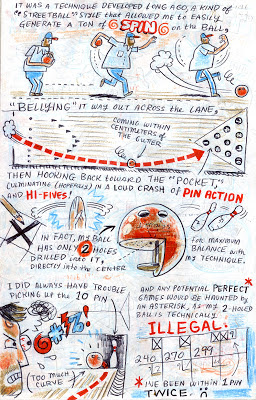 IT WAS A TECHNIQUE DEVELOPED LONG AGO, A KIND OF
"STREETBALL" STYLE that ALLOWED ME to EASILY
GENERATE A TON OF SPIN on the BALL,
"BELLYING" IT WAY OUT ACROSS the LANE,
COMING WITHIN
CENTIMETERS of
the GUTTER
THEN HOOKING BACK toward THE "POCKET,"
CULMINATING (HOPEFULLY) IN A LOUD CRASH OF PIN ACTION
AND HI-FIVES!
IN FACT, MY BALL
HAS ONLY 2 HOLES
DRILLED into IT,
DIRECTLY into the CENTER
FOR MAXIMUM
BALANCE with my
TECHNIQUE.
I DID ALWAYS HAVE TROUBLE
PICKING UP the 10 PIN
TOO MUCH
CURVE
AND ANY POTENTIAL PERFECT
GAMES WOULD BE HAUNTED by
AN ASTERISK, AS MY 2-HOLED
BALL IS TECHNICALLY
ILLEGAL.
240 270 299
* I'VE BEEN WITHIN 1 PIN
TWICE.